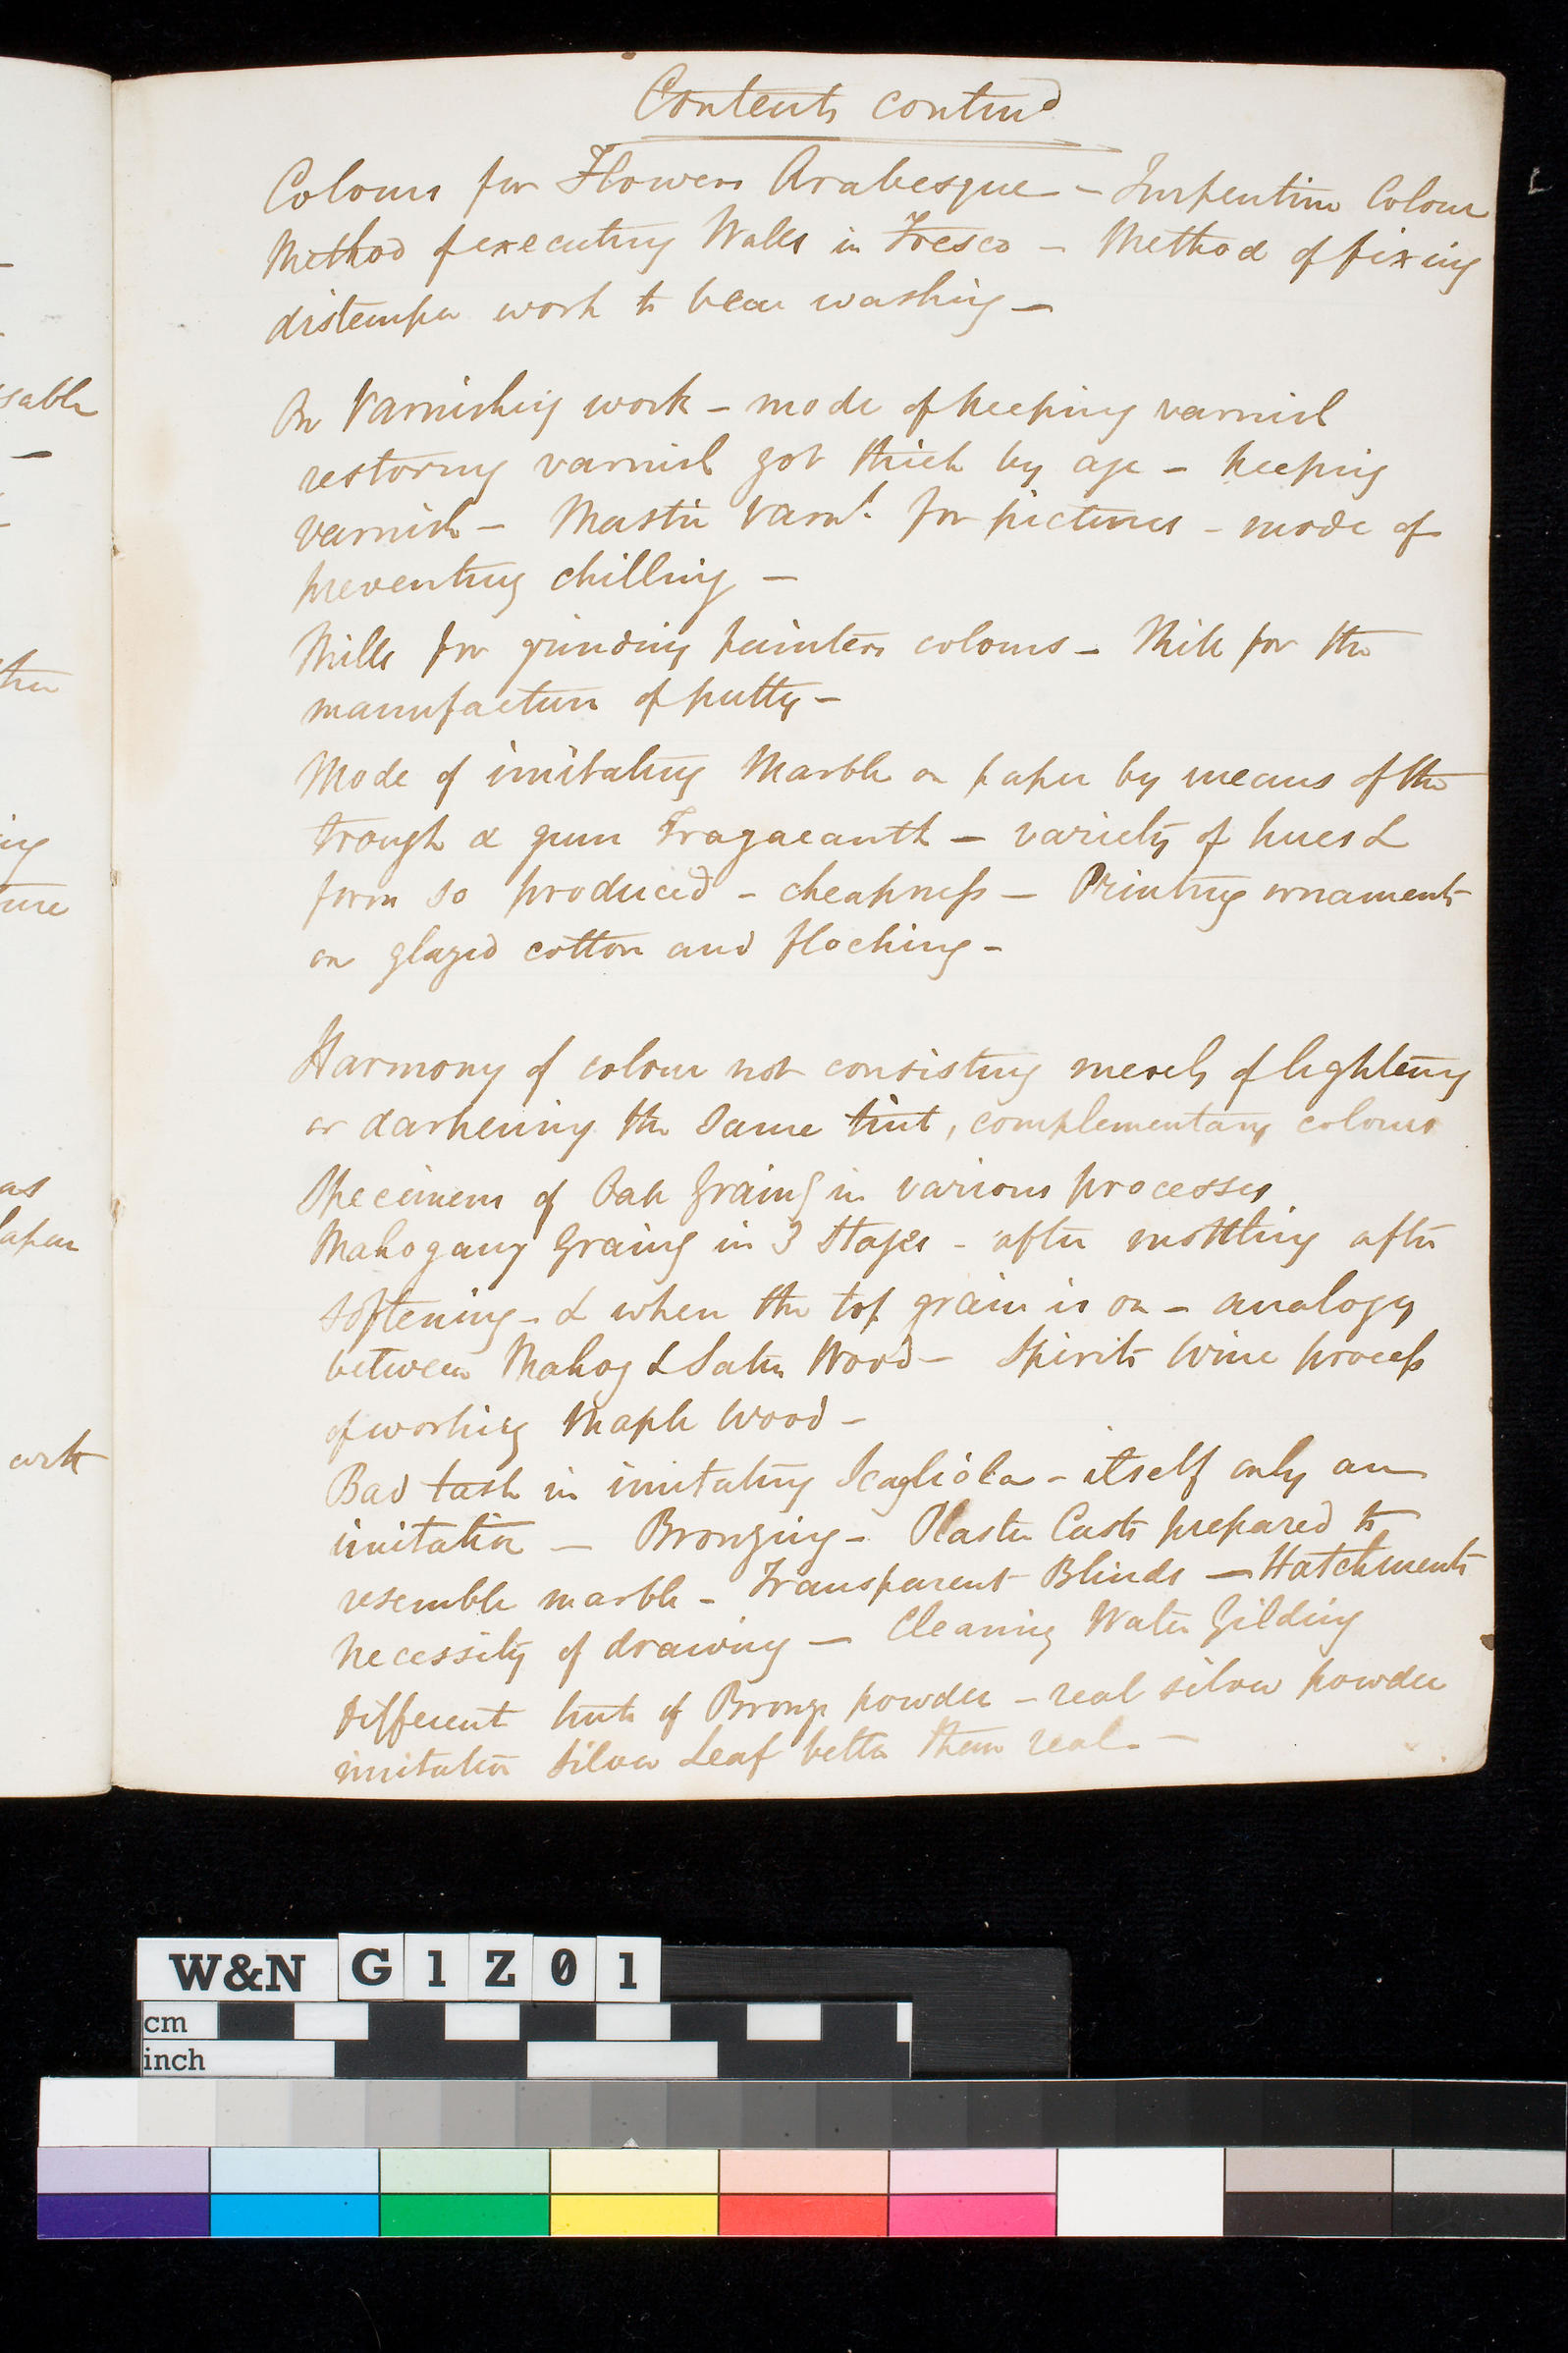 Contents contind
Colours for Flowers Arabesque - Turpentine Colour
Method of executing Walls in Fresco - Method of fixing
distemper work to bear washing -
On Varnishing work - mode of keeping varnish
restoring varnish got thick by age - keeping
varnish - Mastic Varnh. for pictures - mode of
preventing chilling -
Mills for grinding painters colours - Mill for the
manufacture of putty -
Mode of imitating Marble on paper by means of the
trough & gum Tragacanth - variety of hues &
form so produced - cheapness - Printing ornaments
on glazed cotton and flocking -
Harmony of colour not consisting merely of lightening
or darkening the same tint, complementary colours
Specimens of Oak Graing in various processes
Mahogany Graing in 3 Stages - after mottling after
softening - & when the top grain is on - analogy
between Mahog & Satin Wood - Spirits Wine process
of working Maple Wood -
Bad taste in imitating Scagliola - itself only an
imitation - Bronzing - Plaster Casts prepared to
resemble marble - Transparent Blinds - Hatchments
necessity of drawing - Cleaning Water Gilding
Different tints of Bronze powder - real silver powder
imitation Silver Leaf better than real -
sable
ther
ing
ture
as
Japan
with
W&N G1Z01
cm
inch